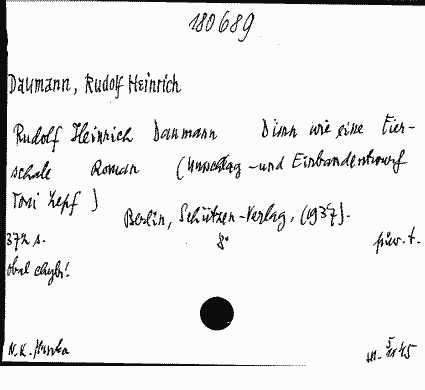 180689
Daumann, Rudolf Heinrich
Rudolf Heinrich Daumann Dünn wie eine Eier-
schale Roman (Umschlag- und Einbandentwurf
Toni Zepf)
Berlin, Schützen-Verlag, (1937).
372 s. 8° pův. t.
obal chybí!
N.K.